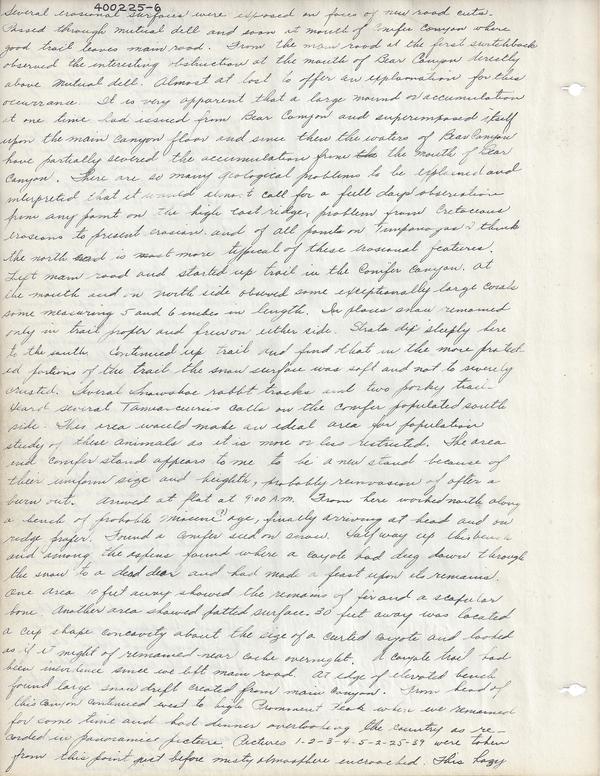 400225-6
Several erosional surfaces were exposed on faces of new road cuts.
Passed through mutual dell and soon at mouth of Conifer Canyon where
good trail leaves main road. From the main road at the first switchback
observed the interesting obstruction at the mouth of Bear Canyon directly
above Mutual dell. Almost at lost to offer an explanation for this
occurrance. It is very apparent that a large mound or accumulation
at one time had issued from Bear Canyon and superimposed itself
upon the main canyon floor and since then the waters of Bear Canyon
have partially severed the accumulation from the the mouth of Bear
Canyon. There are so many geological problems to be explained and
interpreted that it would almost call for a full days observation
from any point on the high east ridge, problem from Cretaceous
erosions to present erosion. and of all points on Timpanogas I think
the north end is most more typical of these erosional features.
Left main road and started up trail in the Conifer Canyon. At
the mouth and on north side observed some exceptionally large corals
some measuring 5 and 6 inches in length. In places snow remained
only in trail proper and few on either side. Strata dip steeply here
to the south. Continued up trail and find that in the more protect-
ed portions of the trail the snow surface was soft and not to severely
crusted. Several Snowshoe rabbit tracks and two porkey trail
Heard several Tamiasciurus calls on the conifer populated south
side. This area would make an ideal area for population
study of these animals as it is more or less restricted. The area
and conifer stand appears to me to be a new stand because of
their uniform size and heighth, probably reinvasion of after a
burn out. Arrived at flat at 9:00 A.M. From here worked north along
a bench of probable Miocene(?) age, finally arriving at head and on
ridge proper. Found a conifer seed on snow. Half way up this bench
and among the aspens found where a coyote had dug down through
the snow to a dead deer and had made a feast upon its remains.
One area 10 feet away showed the remains of fur and a scapular
bone. Another area showed patted surface. 30 feet away was located
a cup shape concavity about the size of a curled coyote and looked
as if it might of remained near cache overnight. A coyote trail had
been in evidence since we left main road. At edge of elevated bench
found large snow drift created from main canyon. From head of
this canyon continued west to high Prominent Peak where we remained
for some time and had dinner overlooking the country as re-
corded in panoramic picture. Pictures 1-2-3-4-5-2-25-39 were taken
from this point just before misty atmosphere encroached. This hazy